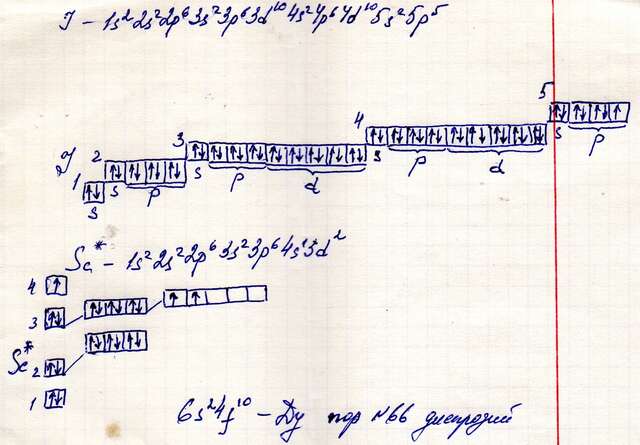 J - 1s²2s²2p⁶3s²3p⁶3d¹⁰4s²4p⁶4d¹⁰5s²5p⁵
5
s p
4
s p d
3
s p d
J 2
s p
1
s
Sc* - 1s²2s²2p⁶3s²3p⁶4s¹3d²
4
3
Sc* 2
1
6s²4f¹⁰ - Dy пор N66 диспрозий